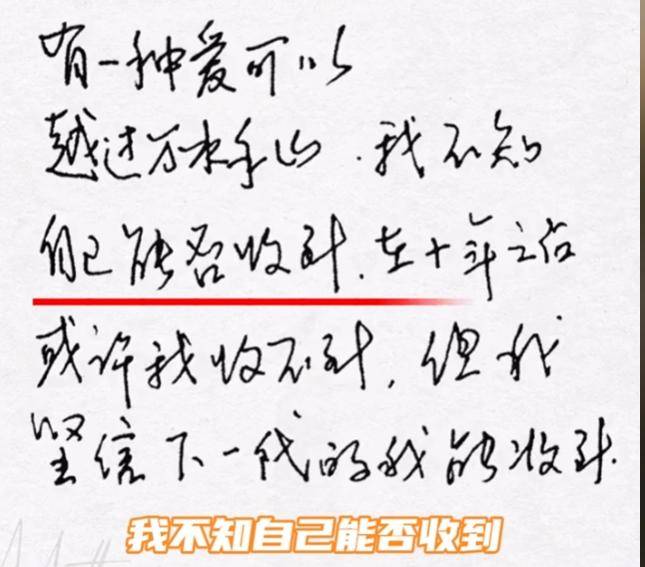 有一种爱可以
越过万水千山.我不知
自己能否收到.在十年之后
或许我收不到,但我
坚信下一代的我能收到.
我不知自己能否收到